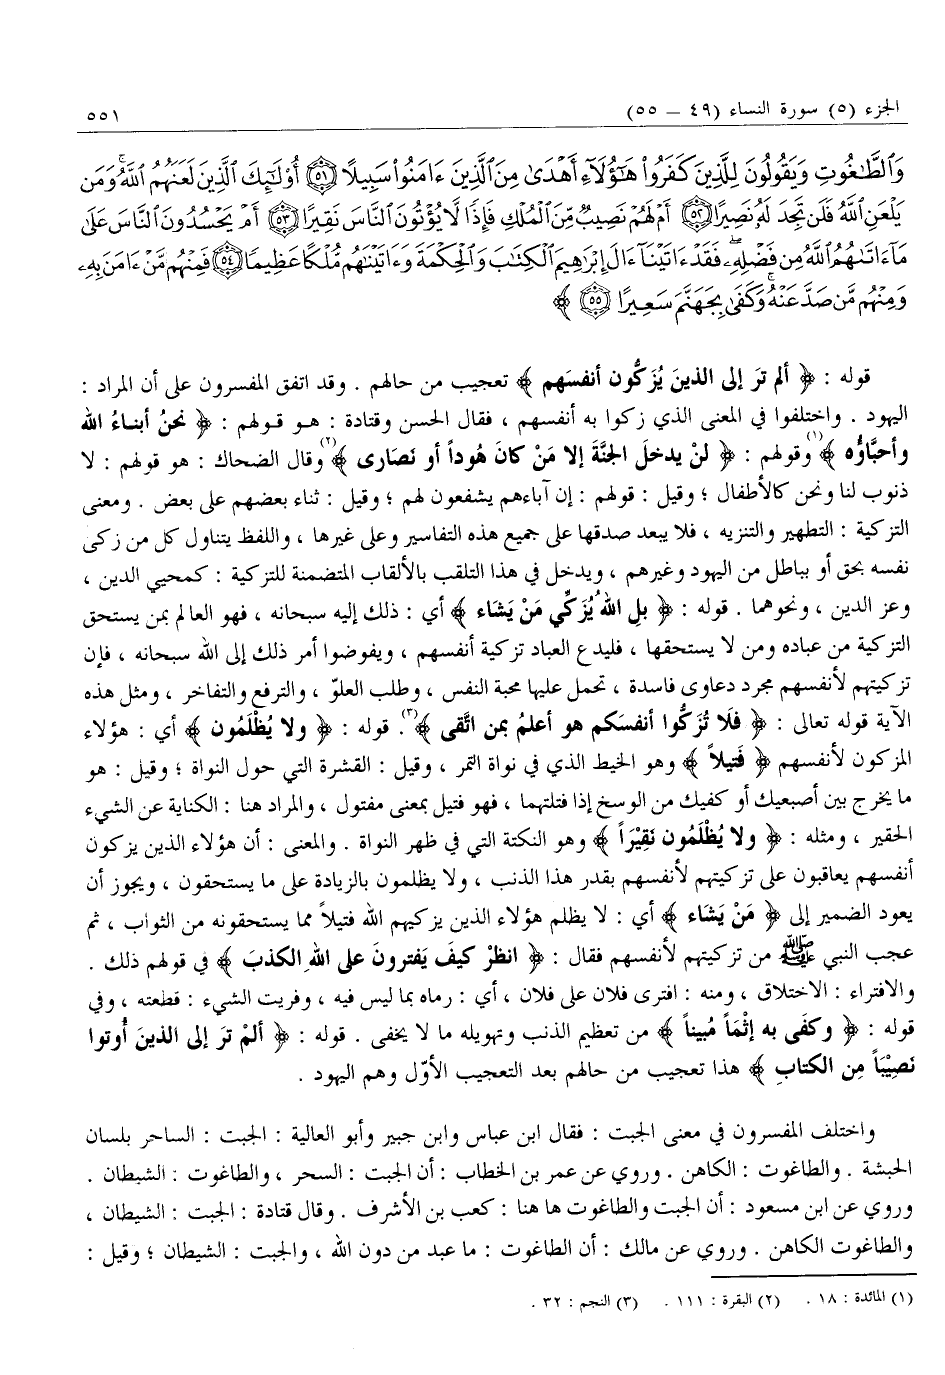 الجزء (٥) سورة النساء (٤٩ – ٥٥) ٥٥١
وَٱلطَّٰغُوتِ وَيَقُولُونَ لِلَّذِينَ كَفَرُواْ هَٰٓؤُلَآءِ أَهْدَىٰ مِنَ ٱلَّذِينَ ءَامَنُواْ سَبِيلًا ۝٥١ أُوْلَٰٓئِكَ ٱلَّذِينَ لَعَنَهُمُ ٱللَّهُۖ وَمَن
يَلْعَنِ ٱللَّهُ فَلَن تَجِدَ لَهُۥ نَصِيرًا ۝٥٢ أَمْ لَهُمْ نَصِيبٌ مِّنَ ٱلْمُلْكِ فَإِذًا لَّا يُؤْتُونَ ٱلنَّاسَ نَقِيرًا ۝٥٣ أَمْ يَحْسُدُونَ ٱلنَّاسَ عَلَىٰ
مَآ ءَاتَىٰهُمُ ٱللَّهُ مِن فَضْلِهِۦۖ فَقَدْ ءَاتَيْنَآ ءَالَ إِبْرَٰهِيمَ ٱلْكِتَٰبَ وَٱلْحِكْمَةَ وَءَاتَيْنَٰهُم مُّلْكًا عَظِيمًا ۝٥٤ فَمِنْهُم مَّنْ ءَامَنَ بِهِۦ
وَمِنْهُم مَّن صَدَّ عَنْهُۚ وَكَفَىٰ بِجَهَنَّمَ سَعِيرًا ۝٥٥ ﴾
قوله : ﴿ ألم ترَ إلى الذينَ يُزَكُّون أنفسَهم ﴾ تعجيب من حالهم . وقد اتفق المفسرون على أن المراد :
اليهود . واختلفوا في المعنى الذي زكوا به أنفسهم ، فقال الحسن وقتادة : هـو قـولهم : ﴿ نحنُ أبنـاءُ الله
وأحبَّاؤُه ﴾(١) وقولهم : ﴿ لنْ يدخلَ الجنَّةَ إلا مَنْ كانَ هُوداً أو نَصَارى ﴾(٢) وقال الضحاك : هو قولهم : لا
ذنوب لنا ونحن كالأطفال ؛ وقيل : قولهم : إن آباءهم يشفعون لهم ؛ وقيل : ثناء بعضهم على بعض . ومعنى
التزكية : التطهير والتنزيه ، فلا يبعد صدقها على جميع هذه التفاسير وعلى غيرها ، واللفظ يتناول كل من زكى
نفسه بحق أو بباطل من اليهود وغيرهم ، ويدخل في هذا التلقب بالألقاب المتضمنة للتزكية : كمحيي الدين ،
وعز الدين ، ونحوهما . قوله : ﴿ بلِ اللهُ يُزَكِّي مَنْ يشَاء ﴾ أي : ذلك إليه سبحانه ، فهو العالم بمن يستحق
التزكية من عباده ومن لا يستحقها ، فليدع العباد تزكية أنفسهم ، ويفوضوا أمر ذلك إلى الله سبحانه ، فإن
تزكيتهم لأنفسهم مجرد دعاوى فاسدة ، تحمل عليها محبة النفس ، وطلب العلوّ ، والترفع والتفاخر ، ومثل هذه
الآية قوله تعالى : ﴿ فَلَا تُزَكُّوا أنفسَكم هو أعلمُ بمن اتَّقى ﴾(٣). قوله : ﴿ ولا يُظْلَمُون ﴾ أي : هؤلاء
المزكون لأنفسهم ﴿ فَتيلاً ﴾ وهو الخيط الذي في نواة التمر ، وقيل : القشرة التي حول النواة ؛ وقيل : هو
ما يخرج بين أصبعيك أو كفيك من الوسخ إذا فتلتهما ، فهو فتيل بمعنى مفتول ، والمراد هنا : الكناية عن الشيء
الحقير ، ومثله : ﴿ ولا يُظْلَمُون نَقِيْرَاً ﴾ وهو النكتة التي في ظهر النواة . والمعنى : أن هؤلاء الذين يزكون
أنفسهم يعاقبون على تزكيتهم لأنفسهم بقدر هذا الذنب ، ولا يظلمون بالزيادة على ما يستحقون ، ويجوز أن
يعود الضمير إلى ﴿ مَنْ يَشَاء ﴾ أي : لا يظلم هؤلاء الذين يزكيهم الله فتيلاً مما يستحقونه من الثواب ، ثم
عجب النبي ﷺ من تزكيتهم لأنفسهم فقال : ﴿ انظرْ كيفَ يَفترونَ على اللهِ الكذبَ ﴾ في قولهم ذلك .
والافتراء : الاختلاق ، ومنه : افترى فلان على فلان ، أي : رماه بما ليس فيه ، وفريت الشيء : قطعته ، وفي
قوله : ﴿ وكفَى به إثْمَاً مُبيناً ﴾ من تعظيم الذنب وتهويله ما لا يخفى . قوله : ﴿ ألمْ ترَ إلى الذينَ أُوتوا
نَصِيْبَاً مِن الكتابِ ﴾ هذا تعجيب من حالهم بعد التعجيب الأوّل وهم اليهود .
واختلف المفسرون في معنى الجبت : فقال ابن عباس وابن جبير وأبو العالية : الجبت : الساحر بلسان
الحبشة . والطاغوت : الكاهن . وروي عن عمر بن الخطاب : أن الجبت : السحر ، والطاغوت : الشيطان .
وروي عن ابن مسعود : أن الجبت والطاغوت ها هنا : كعب بن الأشرف . وقال قتادة : الجبت : الشيطان ،
والطاغوت الكاهن . وروي عن مالك : أن الطاغوت : ما عبد من دون الله ، والجبت : الشيطان ؛ وقيل :
(١) المائدة : ١٨ . (٢) البقرة : ١١١ . (٣) النجم : ٣٢ .